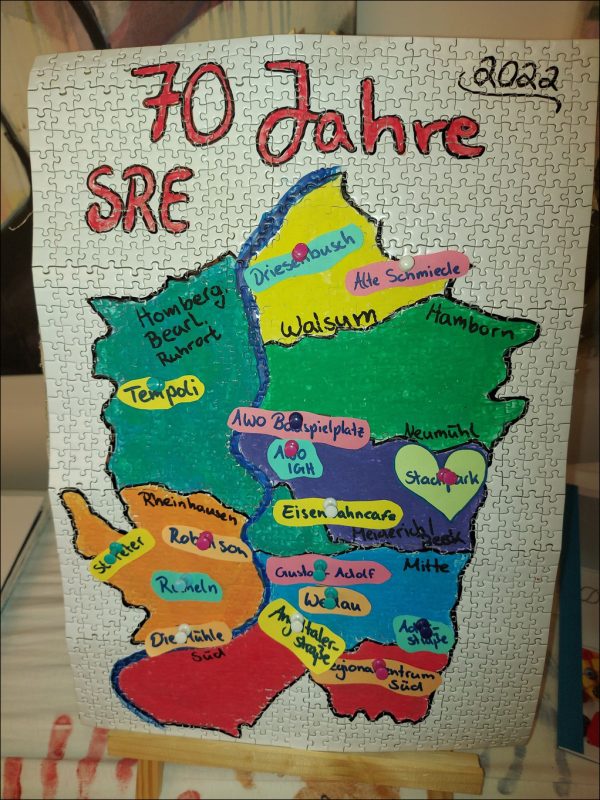 2022
70 Jahre
SRE
Driesenbusch
Alte Schmiede
Homberg,
Bearl,
Ruhrort
Walsum
Hamborn
Tempoli
AWO Bauspielplatz
Neumühl
AWO
IGH
Stadtpark
Rheinhausen
Eisenbahncafe
Robinson
Mitte
Gustav-Adolf
Rumeln
Die Mühle
Süd
Angertaler-
straße
Regionalzentrum
Süd